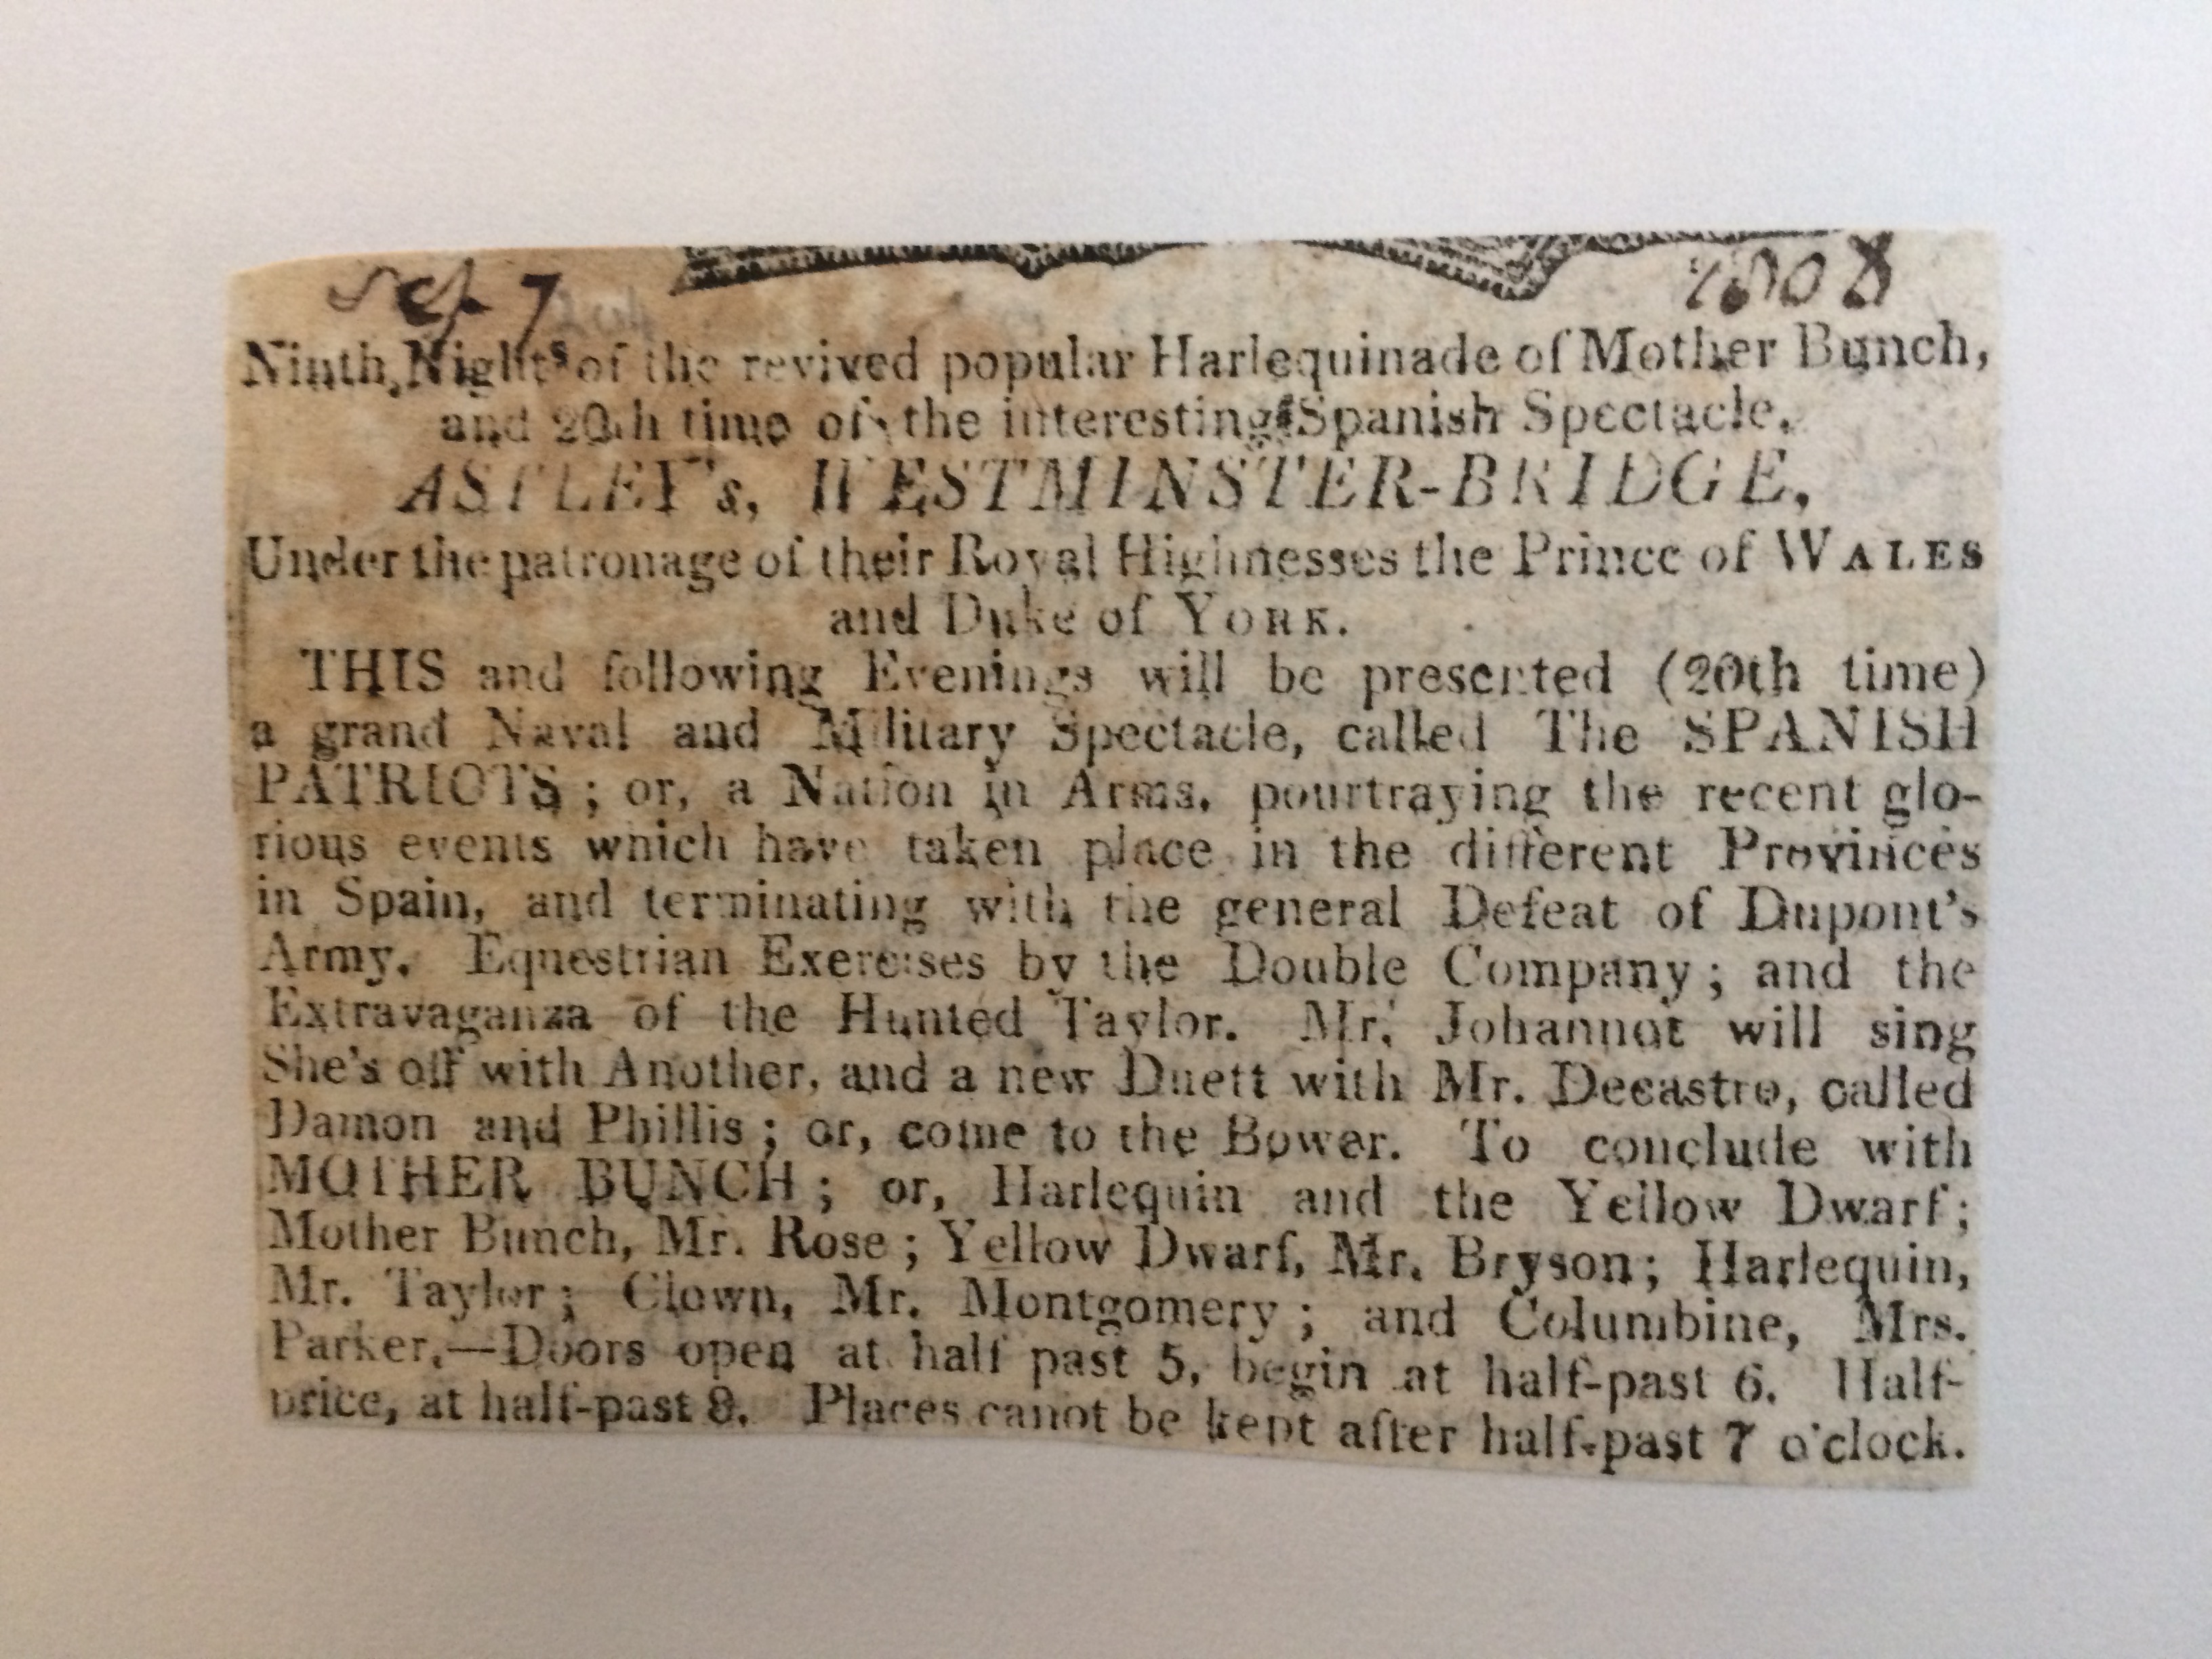 Sep 7 1808
Ninth Night of the revived popular Harlequinade of Mother Bunch,
and 20th time of the interesting Spanish Spectacle.
ASTLEY's, WESTMINSTER-BRIDGE,
Under the patronage of their Royal Highnesses the Prince of WALES
and Duke of YORK.
THIS and following Evenings will be presented (20th time)
a grand Naval and Military Spectacle, called The SPANISH
PATRIOTS; or, a Nation in Arms, pourtraying the recent glo-
rious events which have taken place in the different Provinces
in Spain, and terminating with the general Defeat of Dupont's
Army. Equestrian Exercises by the Double Company; and the
Extravaganza of the Hunted Taylor. Mr. Johannot will sing
She's off with Another, and a new Duett with Mr. Decastro, called
Damon and Phillis; or, come to the Bower. To conclude with
MOTHER BUNCH; or, Harlequin and the Yellow Dwarf;
Mother Bunch, Mr. Rose; Yellow Dwarf, Mr. Bryson; Harlequin,
Mr. Taylor; Clown, Mr. Montgomery; and Columbine, Mrs.
Parker.—Doors open at half past 5, begin at half-past 6. Half-
price, at half-past 8. Places canot be kept after half-past 7 o'clock.